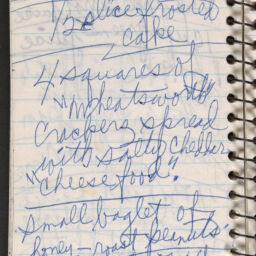 1/2 slice frosted
cake
4 squares of
"Wheatsworth"
Crackers spread
"with salty cheddar
cheese food".
Small baglet of
honey-roast peanuts.